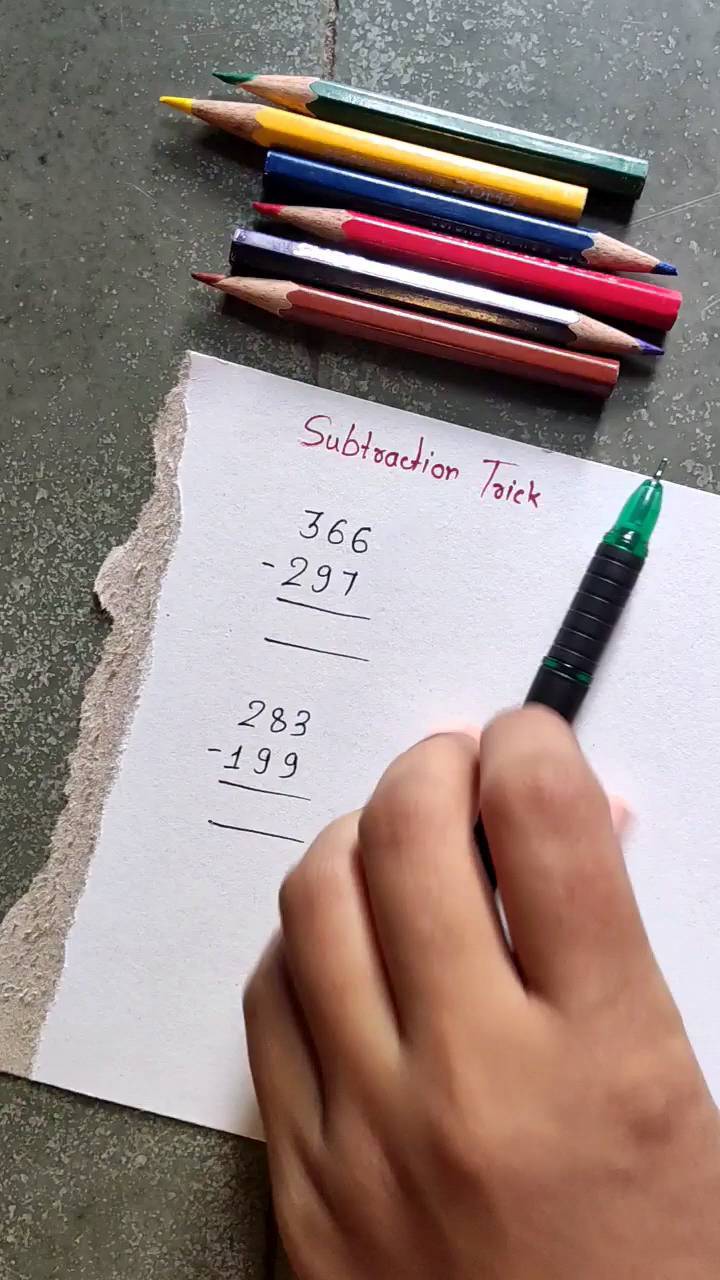 Subtraction Trick
366
-297
283
-199